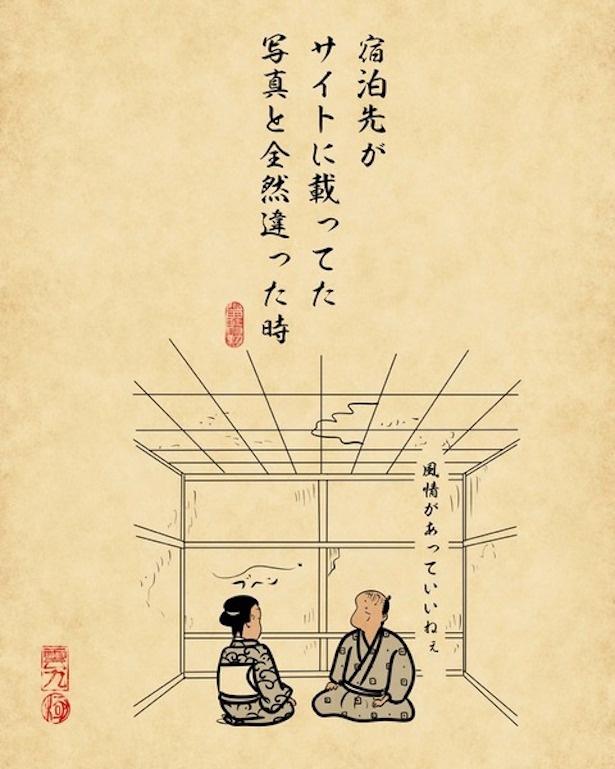 宿泊先が
サイトに載ってた
写真と全然違った時
風情があっていいねぇ
ブ〜ン